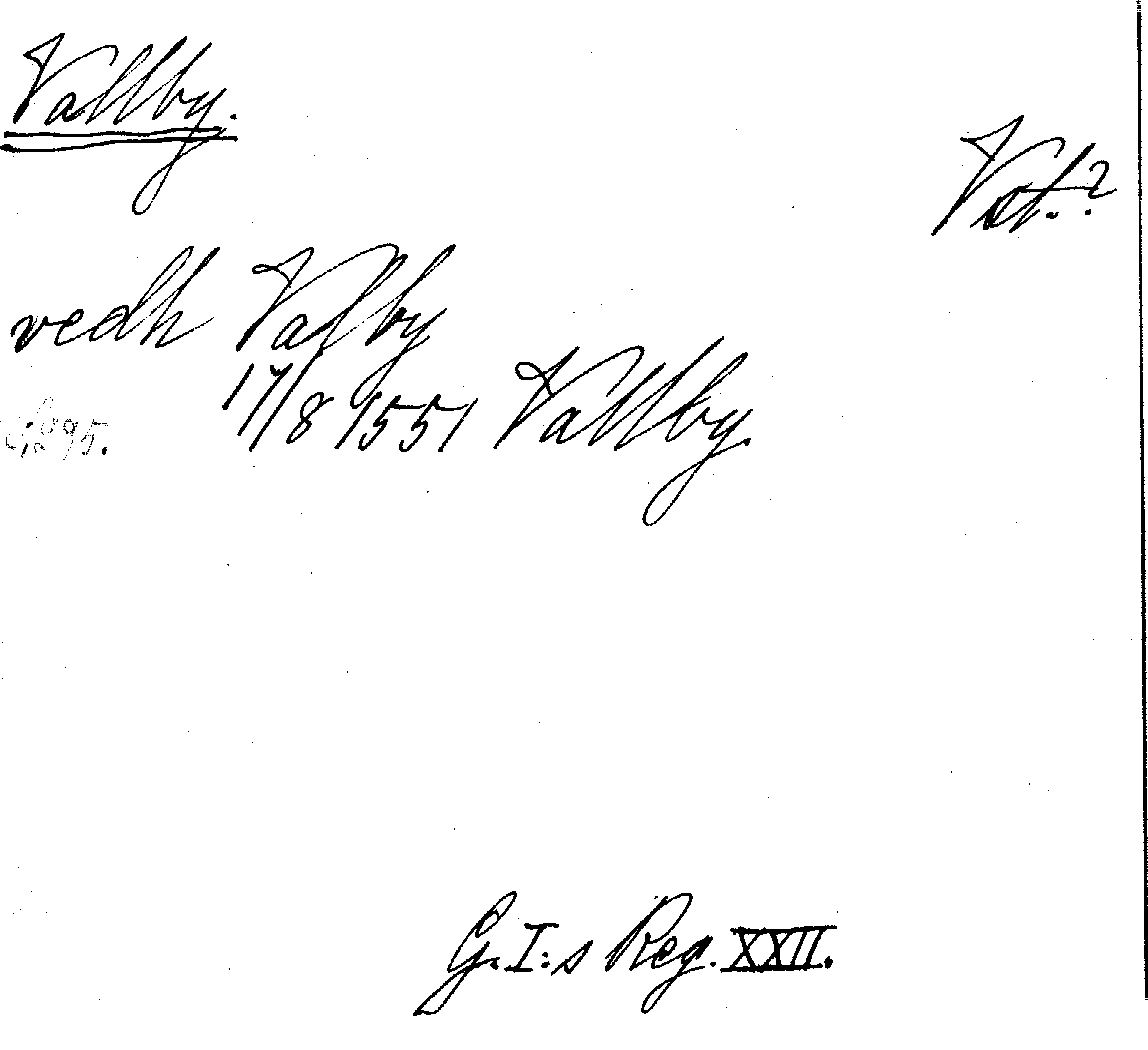 Vallby.
Vst.?
vedh Valby
17/8 1551 Vallby.
G.I:s Reg. XXII.